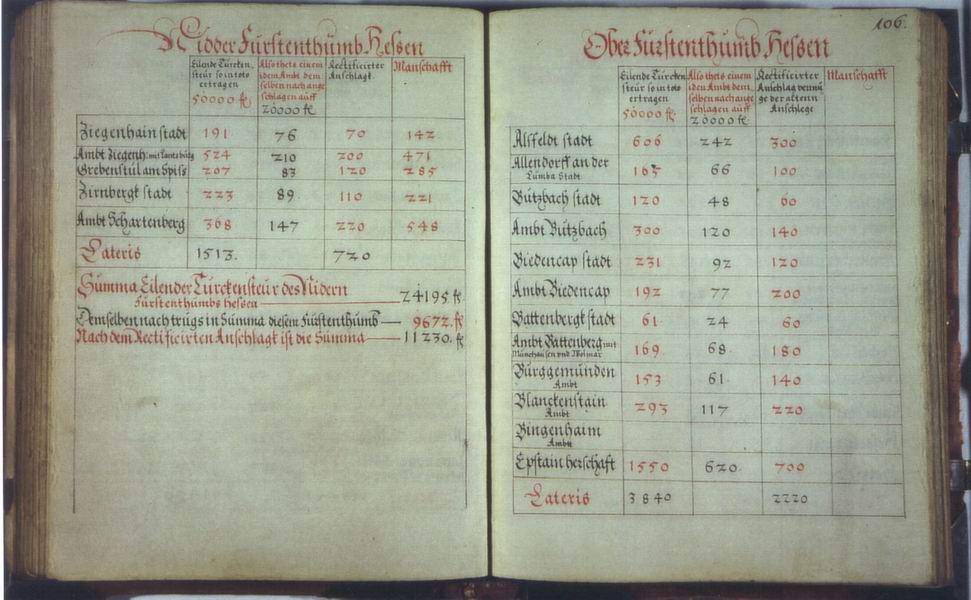 Nidder Fürstenthumb Hessen
Eilende Türcken steür so in toto ertragen 50000 fl
Also thets einem idem Ambt dem selben nach ange schlagen auff 20000 fl
Rectificirter Anschlagt.
Manschafft
Ziegenhain stadt 191 76 70 142
Ambt Ziegenh: mit Lantzbürg 524 210 200 471
Grebenstül am Spiss 207 83 120 285
Zirnbergk stadt 223 89 110 221
Ambt Schartenberg 368 147 220 548
Lateris 1513. 720
Summa Eilender Türckensteür des Nidern
Fürstenthumbs Hessen 24195 fl
Demselben nach trügs in Summa diesem Fürstenthumb 9672. fl
Nach dem Rectificirten Anschlagt ist die Summa 11230. fl
106.
Ober Fürstenthumb Hessen
Eilende Türcken steür so in toto ertragen 50000 fl
Also thets einem iden Ambt dem selben nach ange schlagen auff 20000 fl
Rectificirter Anschlag vermü ge der altenn Anschlege
Manschafft
Alsfeldt stadt 606 242 300
Allendorff an der
Lumba Stadt 165 66 100
Bützbach stadt 120 48 60
Ambt Bützbach 300 120 140
Biedencap stadt 231 92 120
Ambt Biedencap 192 77 200
Battenbergk stadt 61 24 60
Ambt Battenberg mit
Münchausen vnd Wolmar 169 68 180
Burggemünden
Ambt 153 61 140
Blanckenstain
Ambt 293 117 220
Bingenhaim
Ambtt
Epstain herschafft 1550 620 700
Lateris 3840 2220